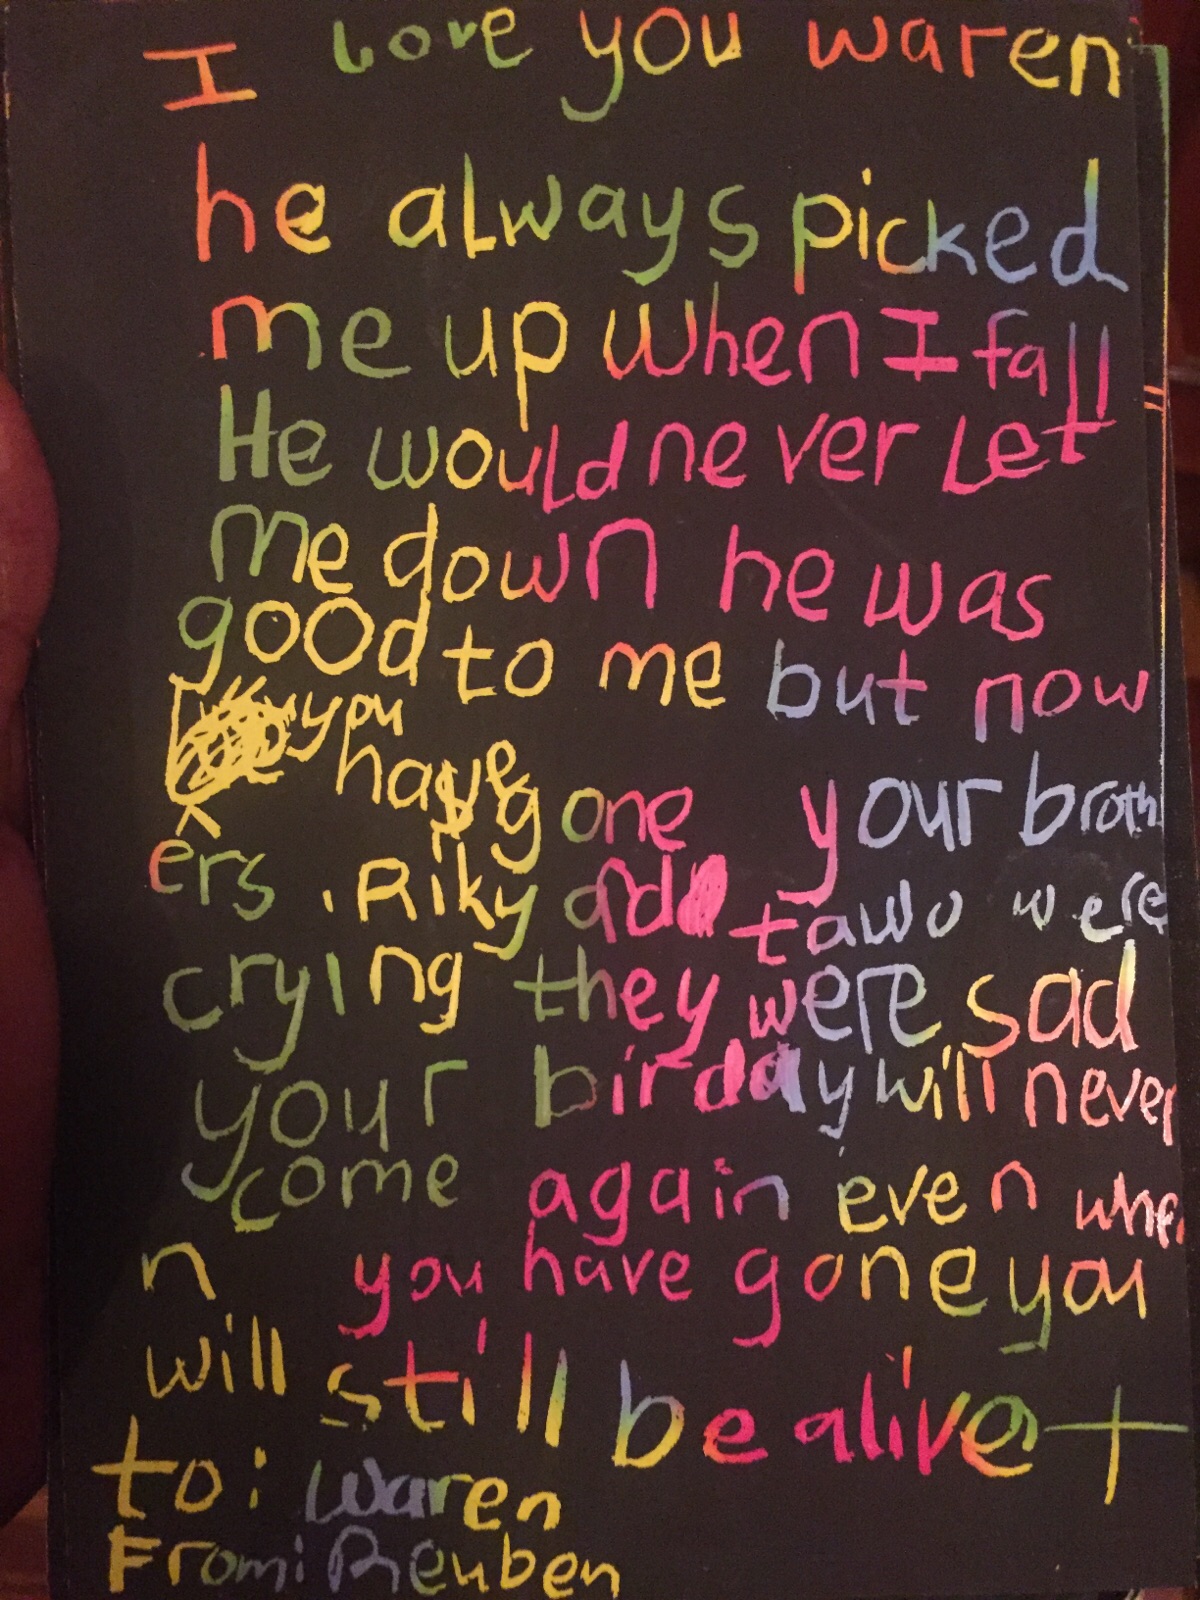 I love you waren
he always picked
me up when I fall
He would never Let
me down he was
good to me but now
you
have gone your broth
ers . Riky add tawo were
crying they were sad
your birday will never
come again even when
n you have gone you
will still be alive
to: Waren
From: Reuben